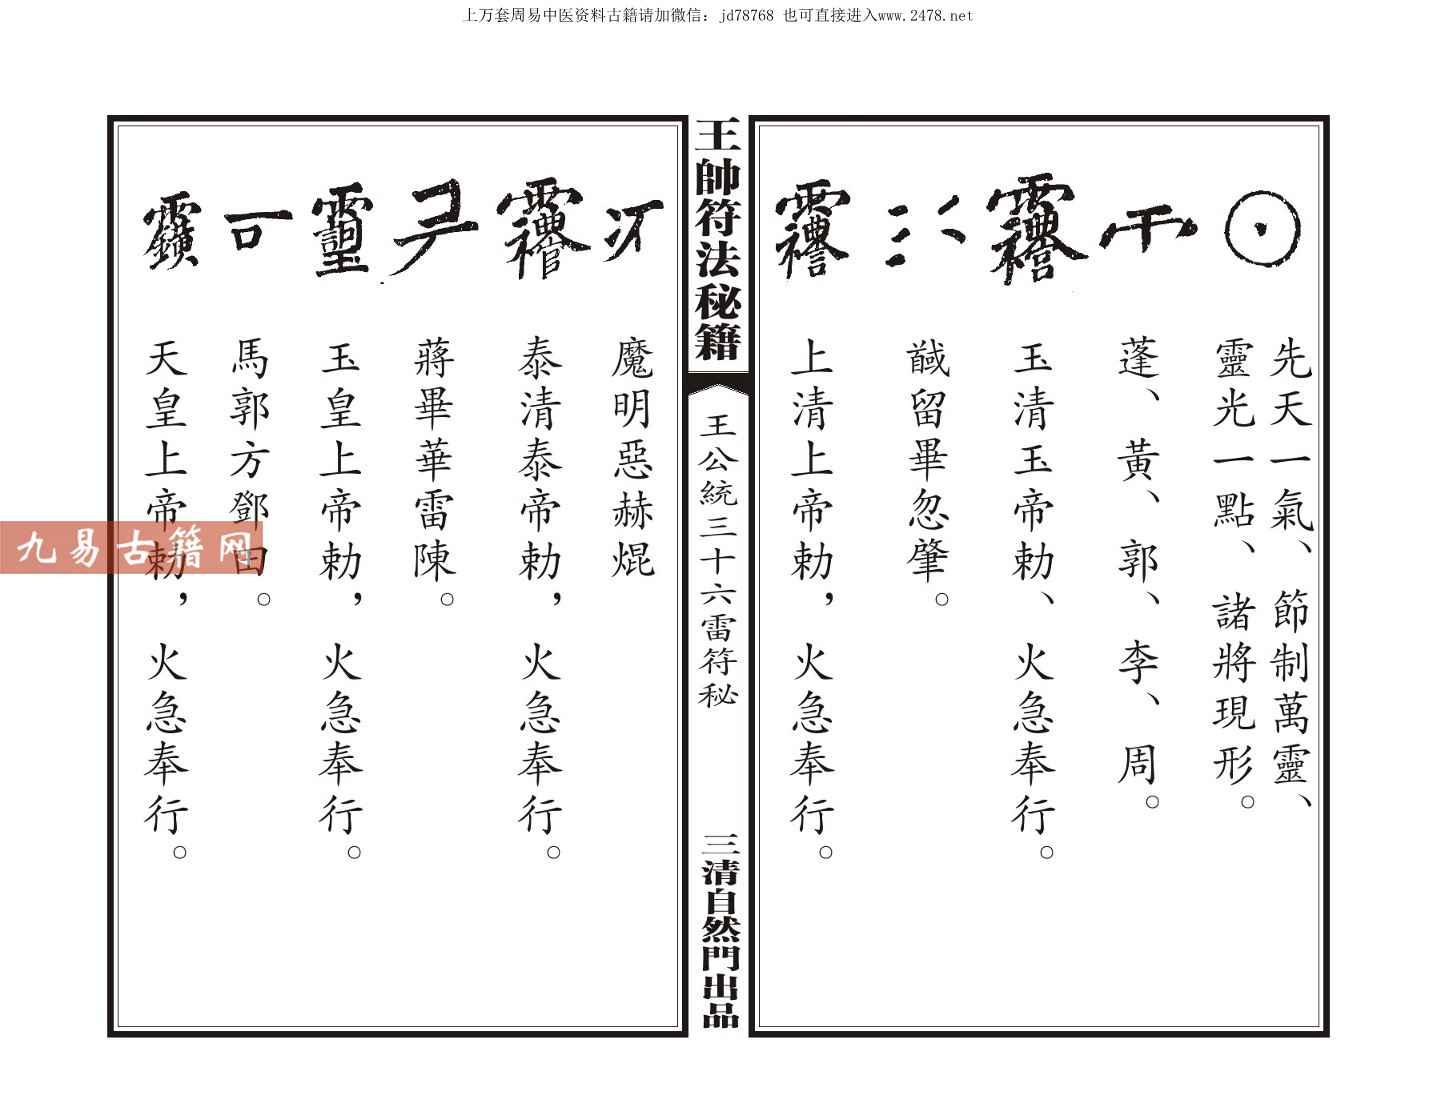 上万套周易中医资料古籍请加微信：jd78768 也可直接进入www.2478.net
先天一氣、節制萬靈、
靈光一點、諸將現形。
蓬、黃、郭、李、周。
玉清玉帝勅、火急奉行。
馘留畢忽肇。
上清上帝勅，火急奉行。
王帥符法秘籍
王公統三十六雷符秘
三清自然門出品
魔明惡赫焜
泰清泰帝勅，火急奉行。
蔣畢華雷陳。
玉皇上帝勅，火急奉行。
馬郭方鄧田。
天皇上帝勅，火急奉行。
九易古籍网